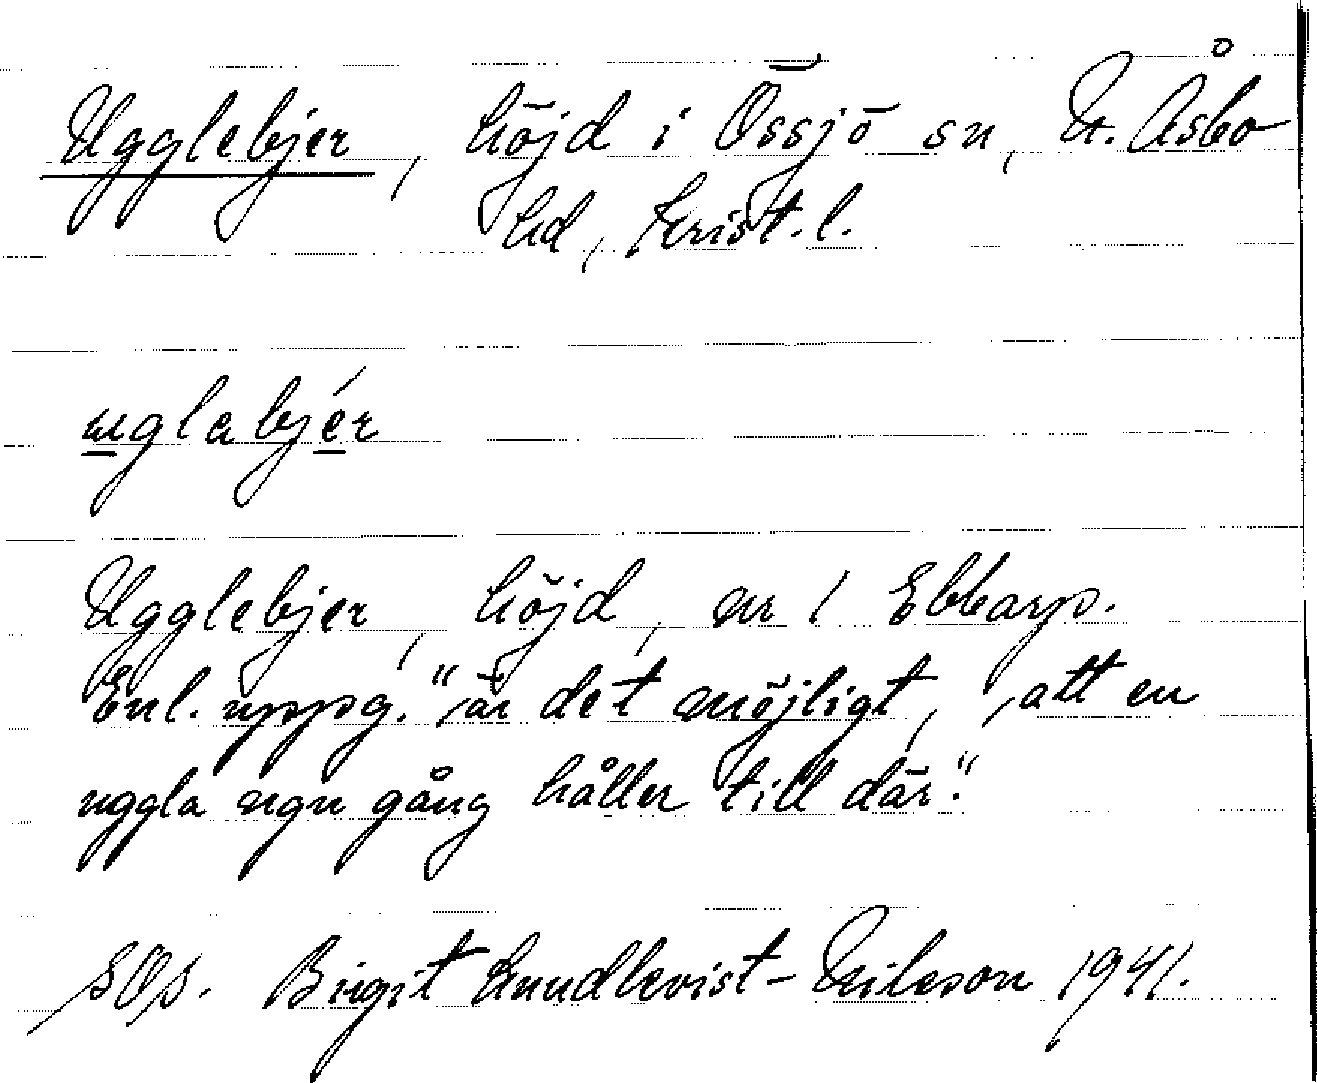 Ugglebjer, höjd i Össjö sn, N. Åsbo
hd, Krist. l.
uglabjér
Ugglebjer, höjd, nr 1 Ebbarp.
Enl. uppg. "är det möjligt, att en
uggla ngn gång håller till där."
Birgit Lundkvist-Nilsson 1941.